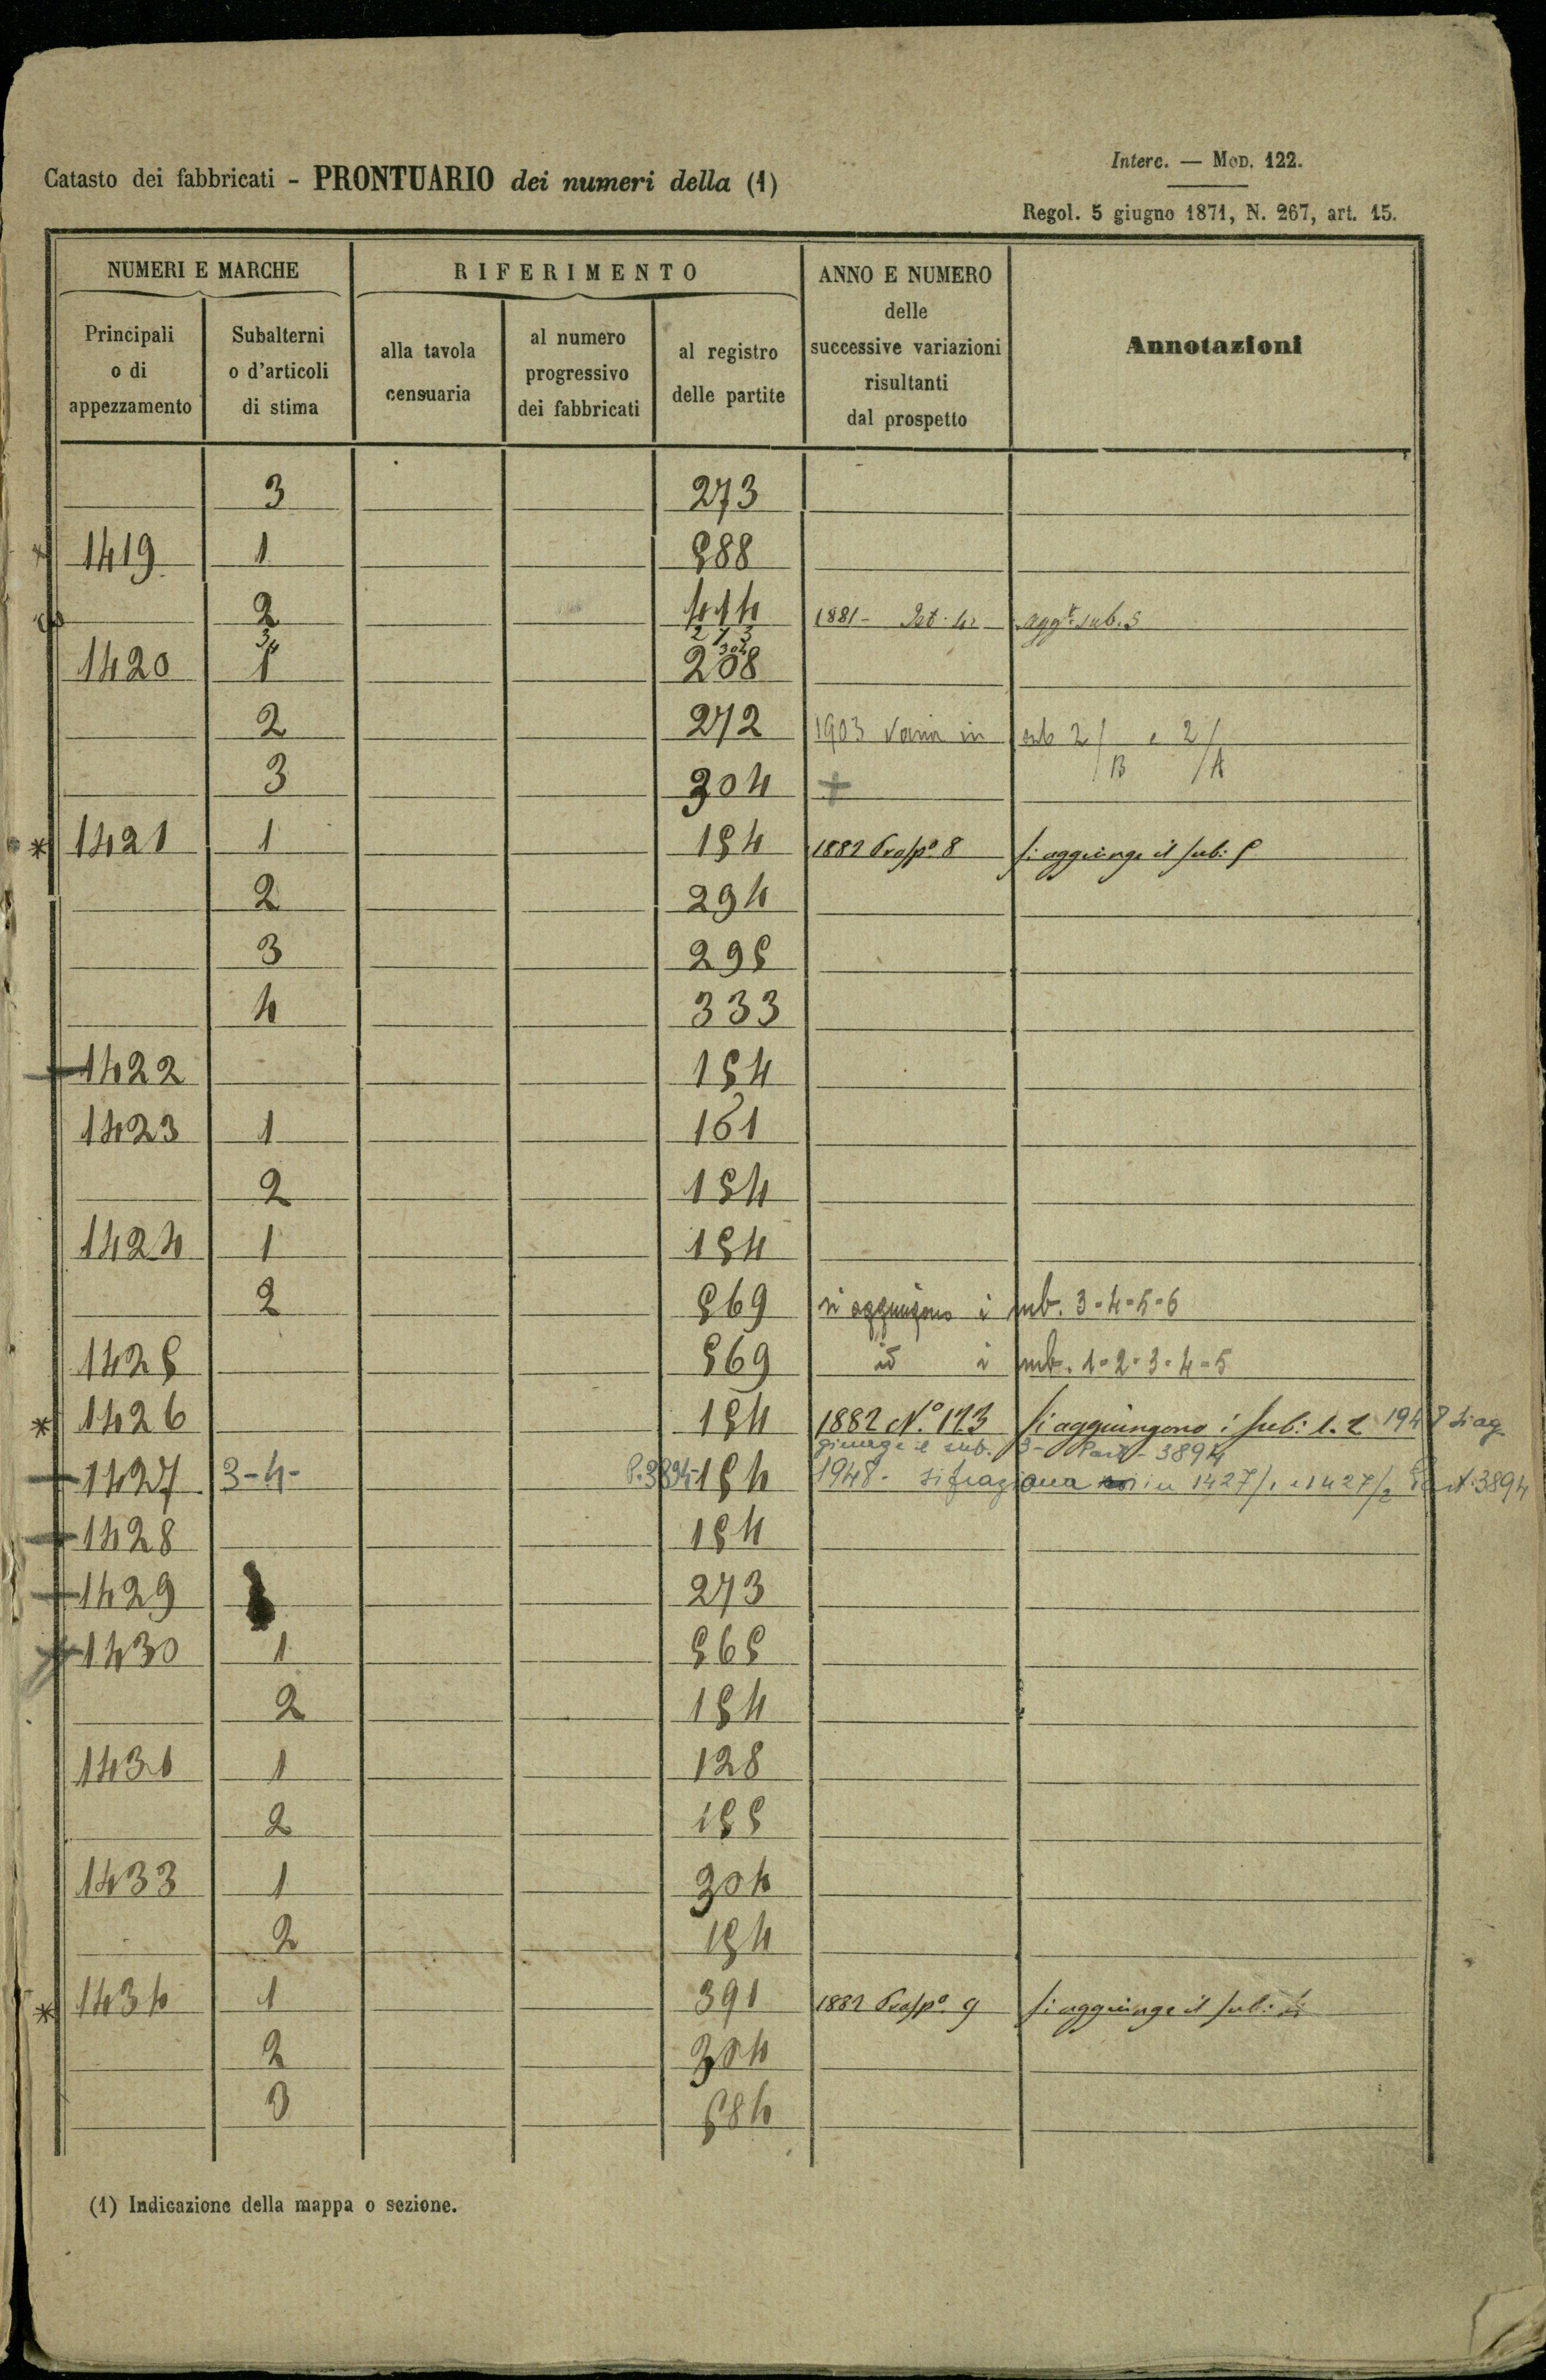 Interc. — Mod. 122.
Catasto dei fabbricati - PRONTUARIO dei numeri della (1)
Regol. 5 giugno 1871, N. 267, art. 15.
NUMERI E MARCHE RIFERIMENTO ANNO E NUMERO delle successive variazioni risultanti dal prospetto Annotazioni
Principali o di appezzamento Subalterni o d'articoli di stima alla tavola censuaria al numero progressivo dei fabbricati al registro delle partite
3 273
1419 1 588
2 414 1881 - sub. 5
3/4 2 1 3
304
1420 1 208
2 272 1903 Varia in sub 2/B e 2/A
3 304 +
* 1421 1 154 1882 Prosp.o 8 si aggiunge il sub: 5
2 294
3 295
4 333
1422 154
1423 1 161
2 154
1424 1 154
2 569 si aggiungono i sub. 3-4-5-6
1425 569 id i sub. 1-2-3-4-5
* 1426 154 1882 N.o 123 si aggiungono i sub: 1. 2 1948 si ag
giunge il sub. 3- Part- 3894
1427 3-4- P.3894- 154 1948- si fraziona in 1427/1 e 1427/2 Part. 3894
1428 154
1429 273
1430 1 565
2 154
1431 1 128
2 155
1433 1 304
2 154
* 1434 1 391 1882 Prosp.o 9 si aggiunge il sub:
2 304
3 584
(1) Indicazione della mappa o sezione.